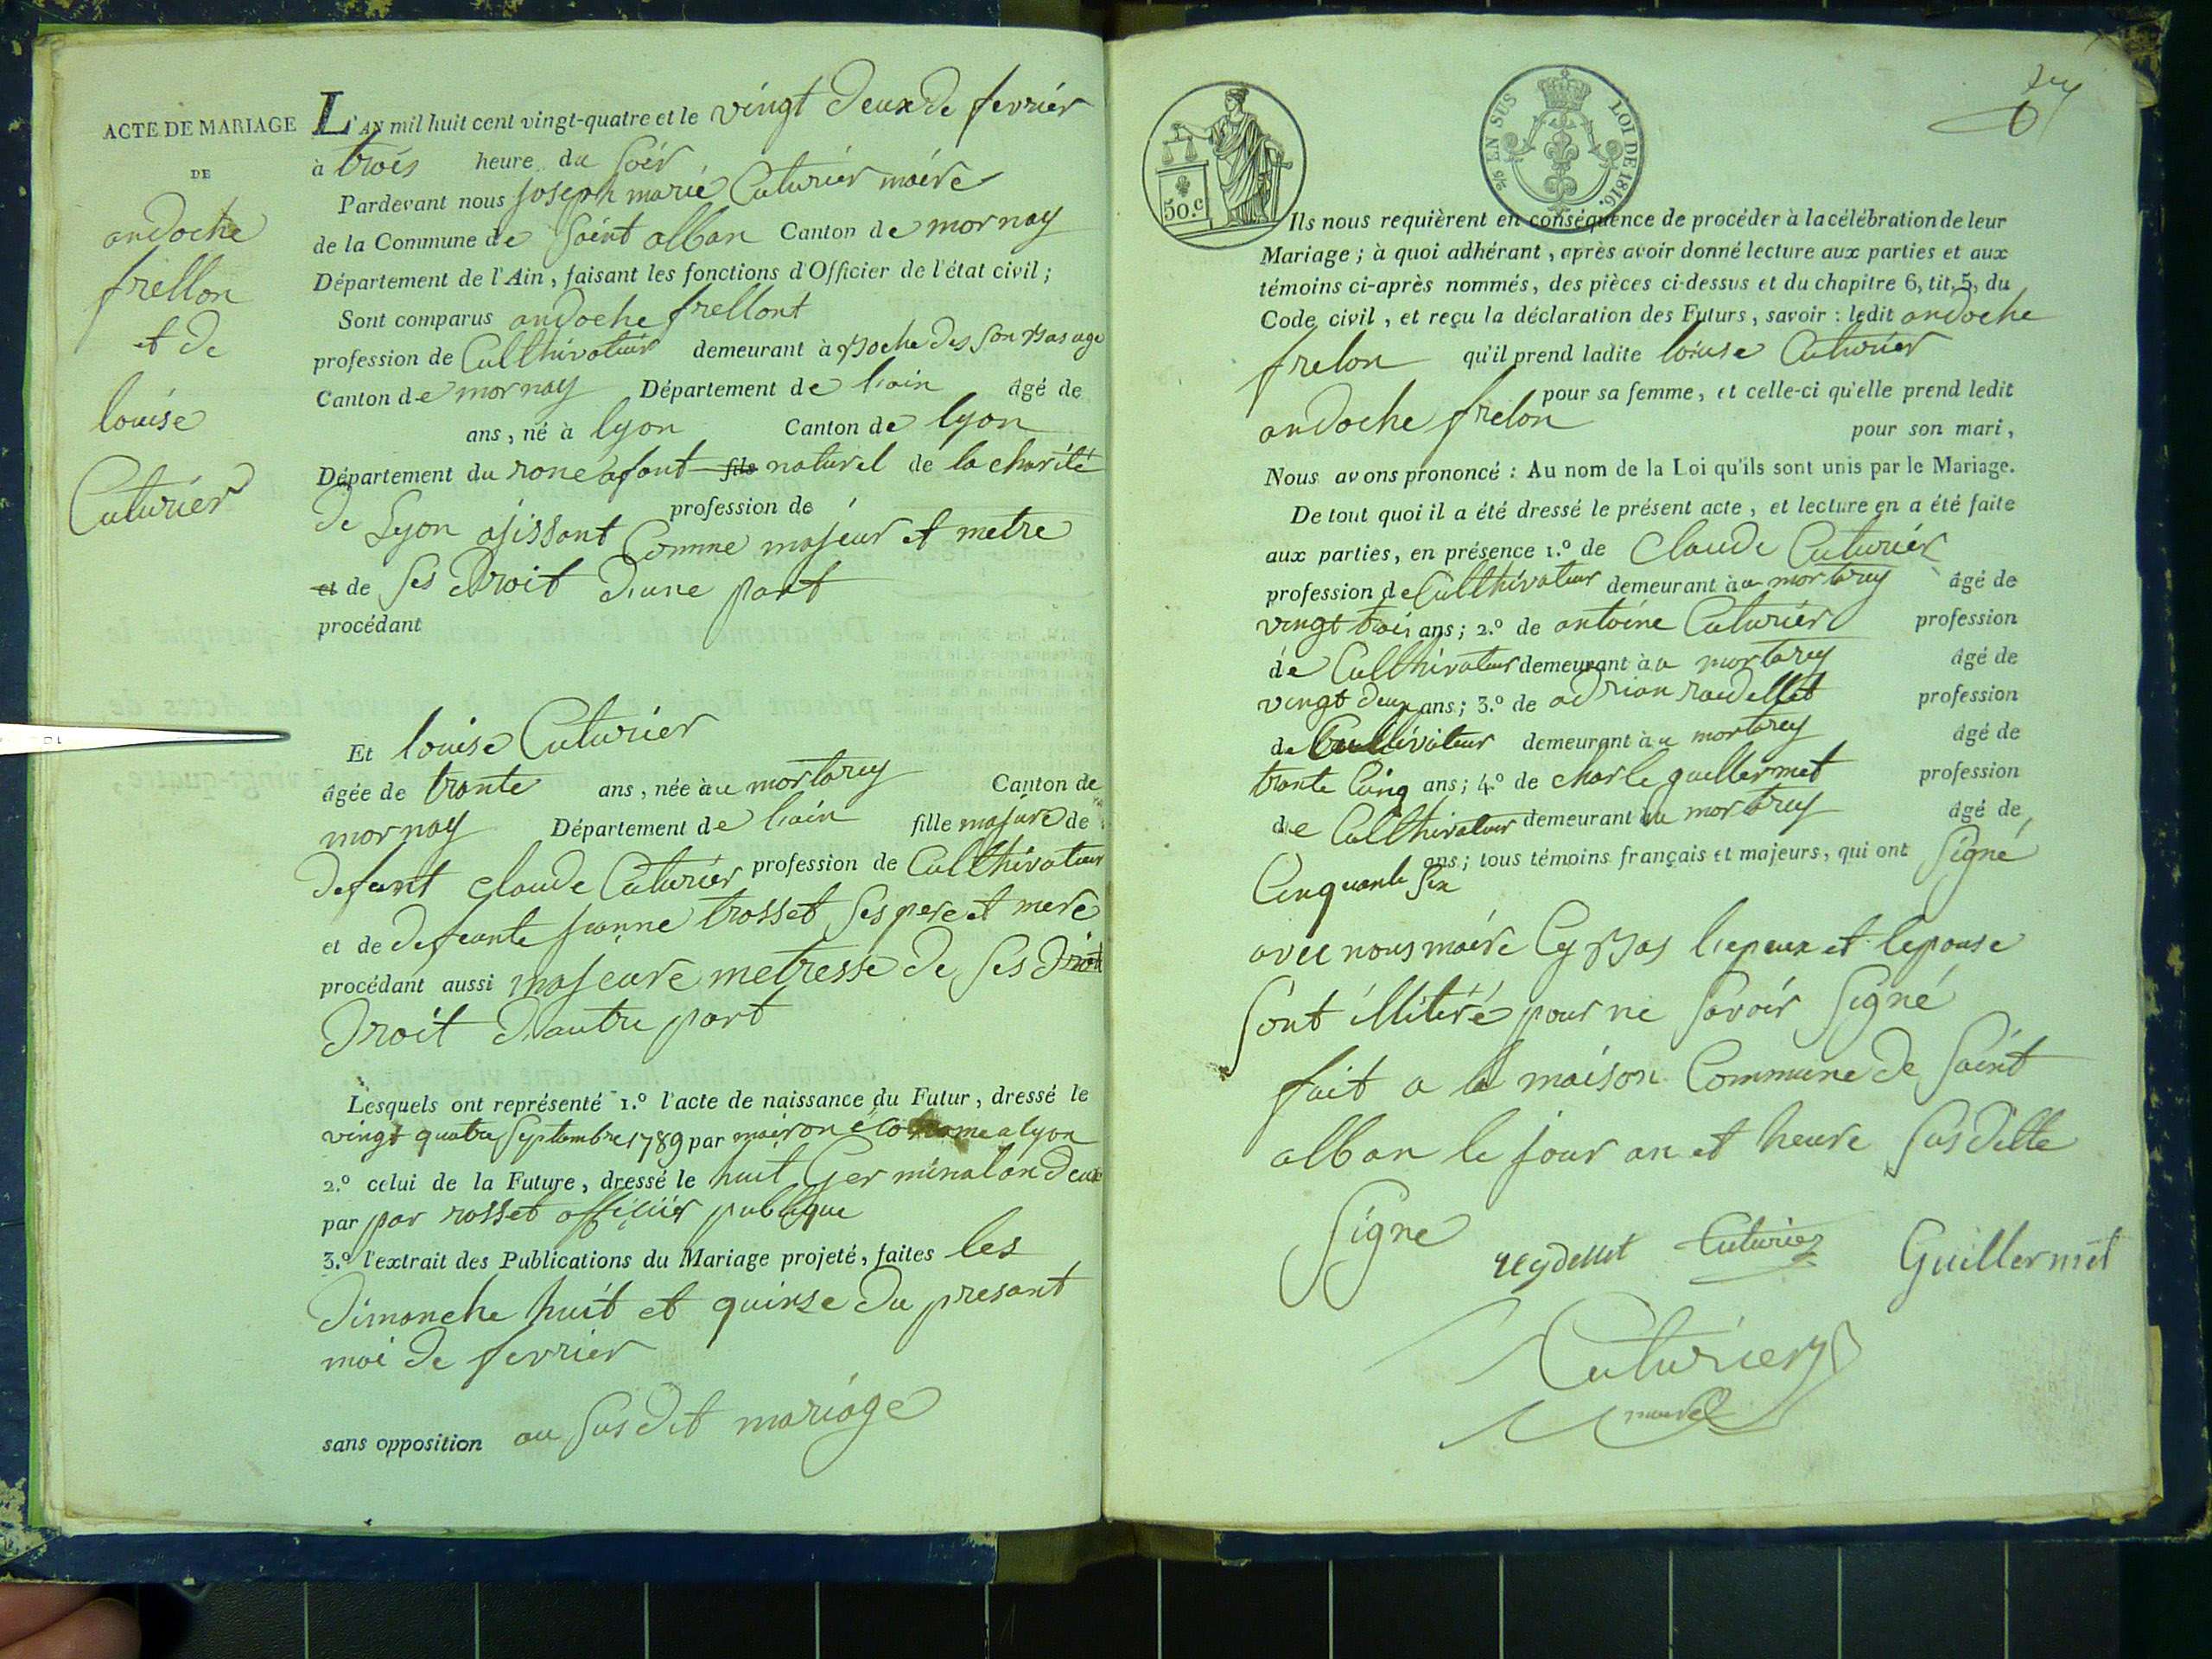 ACTE DE MARIAGE
DE
andoche
frellon
et de
louise
Cuturier
L'AN mil huit cent vingt-quatre et le vingt deux de fevrier
à trois heure du soir
Pardevant nous joseph marie Cuturier maire
de la Commune de saint alban Canton de mornay
Département de l'Ain, faisant les fonctions d'Officier de l'état civil;
Sont comparus andoche frellont
profession de Culthivateur demeurant à
Canton de mornay Département de l'ain âgé de
ans, né à lyon Canton de lyon
Département du rone afant fils naturel de la charité
profession de
de Lyon ajissant Comme majeur et metre
et de ses droit d'une part
procédant
Et louise Cuturier
âgée de trante ans, née au mortarey Canton de
mornay Département de l'ain fille majure de
defunt claude Cuturier profession de Culthivateur
et de defeunte janne trosset ses pere et mere
procédant aussi majeure metresse de ses droit
droit d'autre part
Lesquels ont représenté 1.º l'acte de naissance du Futur, dressé le
vingt quatre septembre 1789 par mairon économe a lyon
2.º celui de la Future, dressé le huit Germinal an deux
par par rosset officiier publique
3.º l'extrait des Publications du Mariage projeté, faites les
dimanche huit et quinse du presant
moi de fevrier
sans opposition au susdit mariage
50.c
2/6 EN SUS
LOI DE 1816.
Ils nous requièrent en conséquence de procéder à la célébration de leur
Mariage; à quoi adhérant, après avoir donné lecture aux parties et aux
témoins ci-après nommés, des pièces ci-dessus et du chapitre 6, tit. 5, du
Code civil, et reçu la déclaration des Futurs, savoir: ledit andoche
frelon qu'il prend ladite louise Cuturier
pour sa femme, et celle-ci qu'elle prend ledit
andoche frelon pour son mari,
Nous avons prononcé: Au nom de la Loi qu'ils sont unis par le Mariage.
De tout quoi il a été dressé le présent acte, et lecture en a été faite
aux parties, en présence 1.º de Claude Cuturier
profession de Culthivateur demeurant à u mortarey âgé de
vingt trois ans; 2.º de antoine Cuturier profession
de Culthivateur demeurant à u mortarey âgé de
vingt deux ans; 3.º de adrian raidellet profession
de Cultivateur demeurant à u mortarey âgé de
trante Cinq ans; 4.º de charle guillermet profession
de Culthivateur demeurant au mortarey âgé de
Cinquante six ans; tous témoins français et majeurs, qui ont signé
avec nous maire l'epeux et l'epouse
sont illitéré pour ne savoir signé
fait a la maison Commune de saint
alban le jour an et heure susditte
signe reydellet Cuturier Guillermet
Cuturier